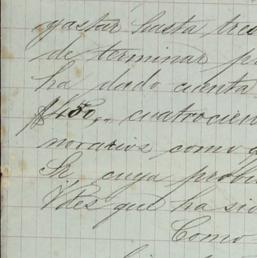 gastar hasta tre
de terminar p
ha dado cuenta
$450,, cuatrocien
norarios, como q
Sr, cuya probi
Vdes que ha si
Como